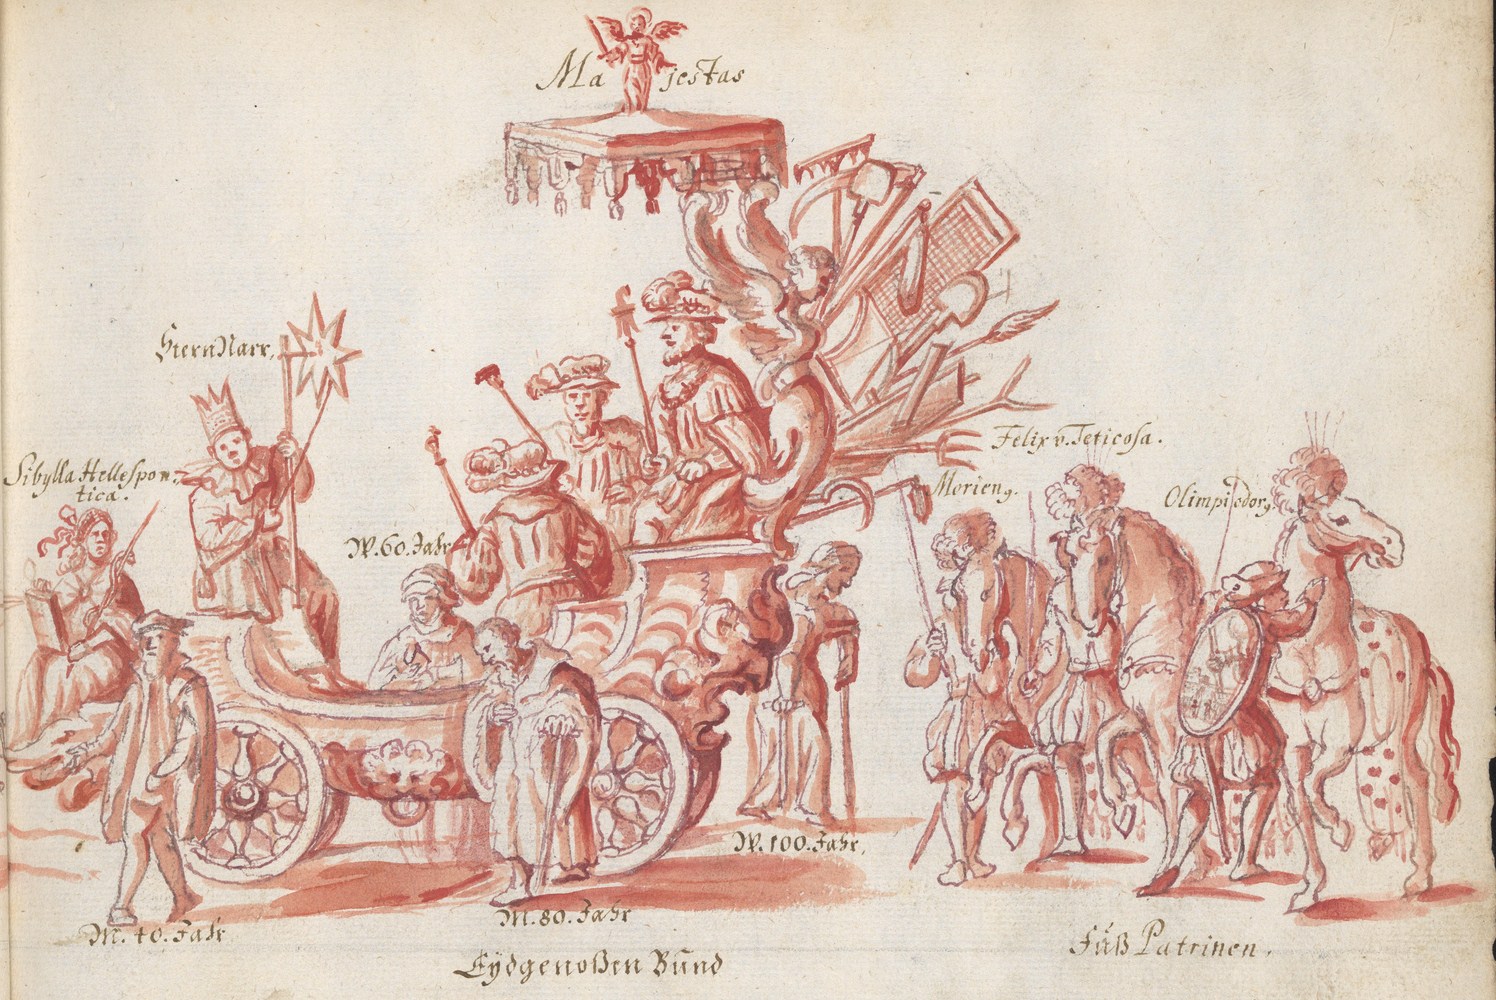 Ma jestas
SternNarr,
Sibylla Hellespon=
tica.
W. 60. Jahr
Felix v. Teticosa.
Morien9.
Olimpiodor9
W. 100. Jahr,
M. 40. Jahr
M. 80. Jahr
Eydgenoßen Bund
Füß Patrinen.